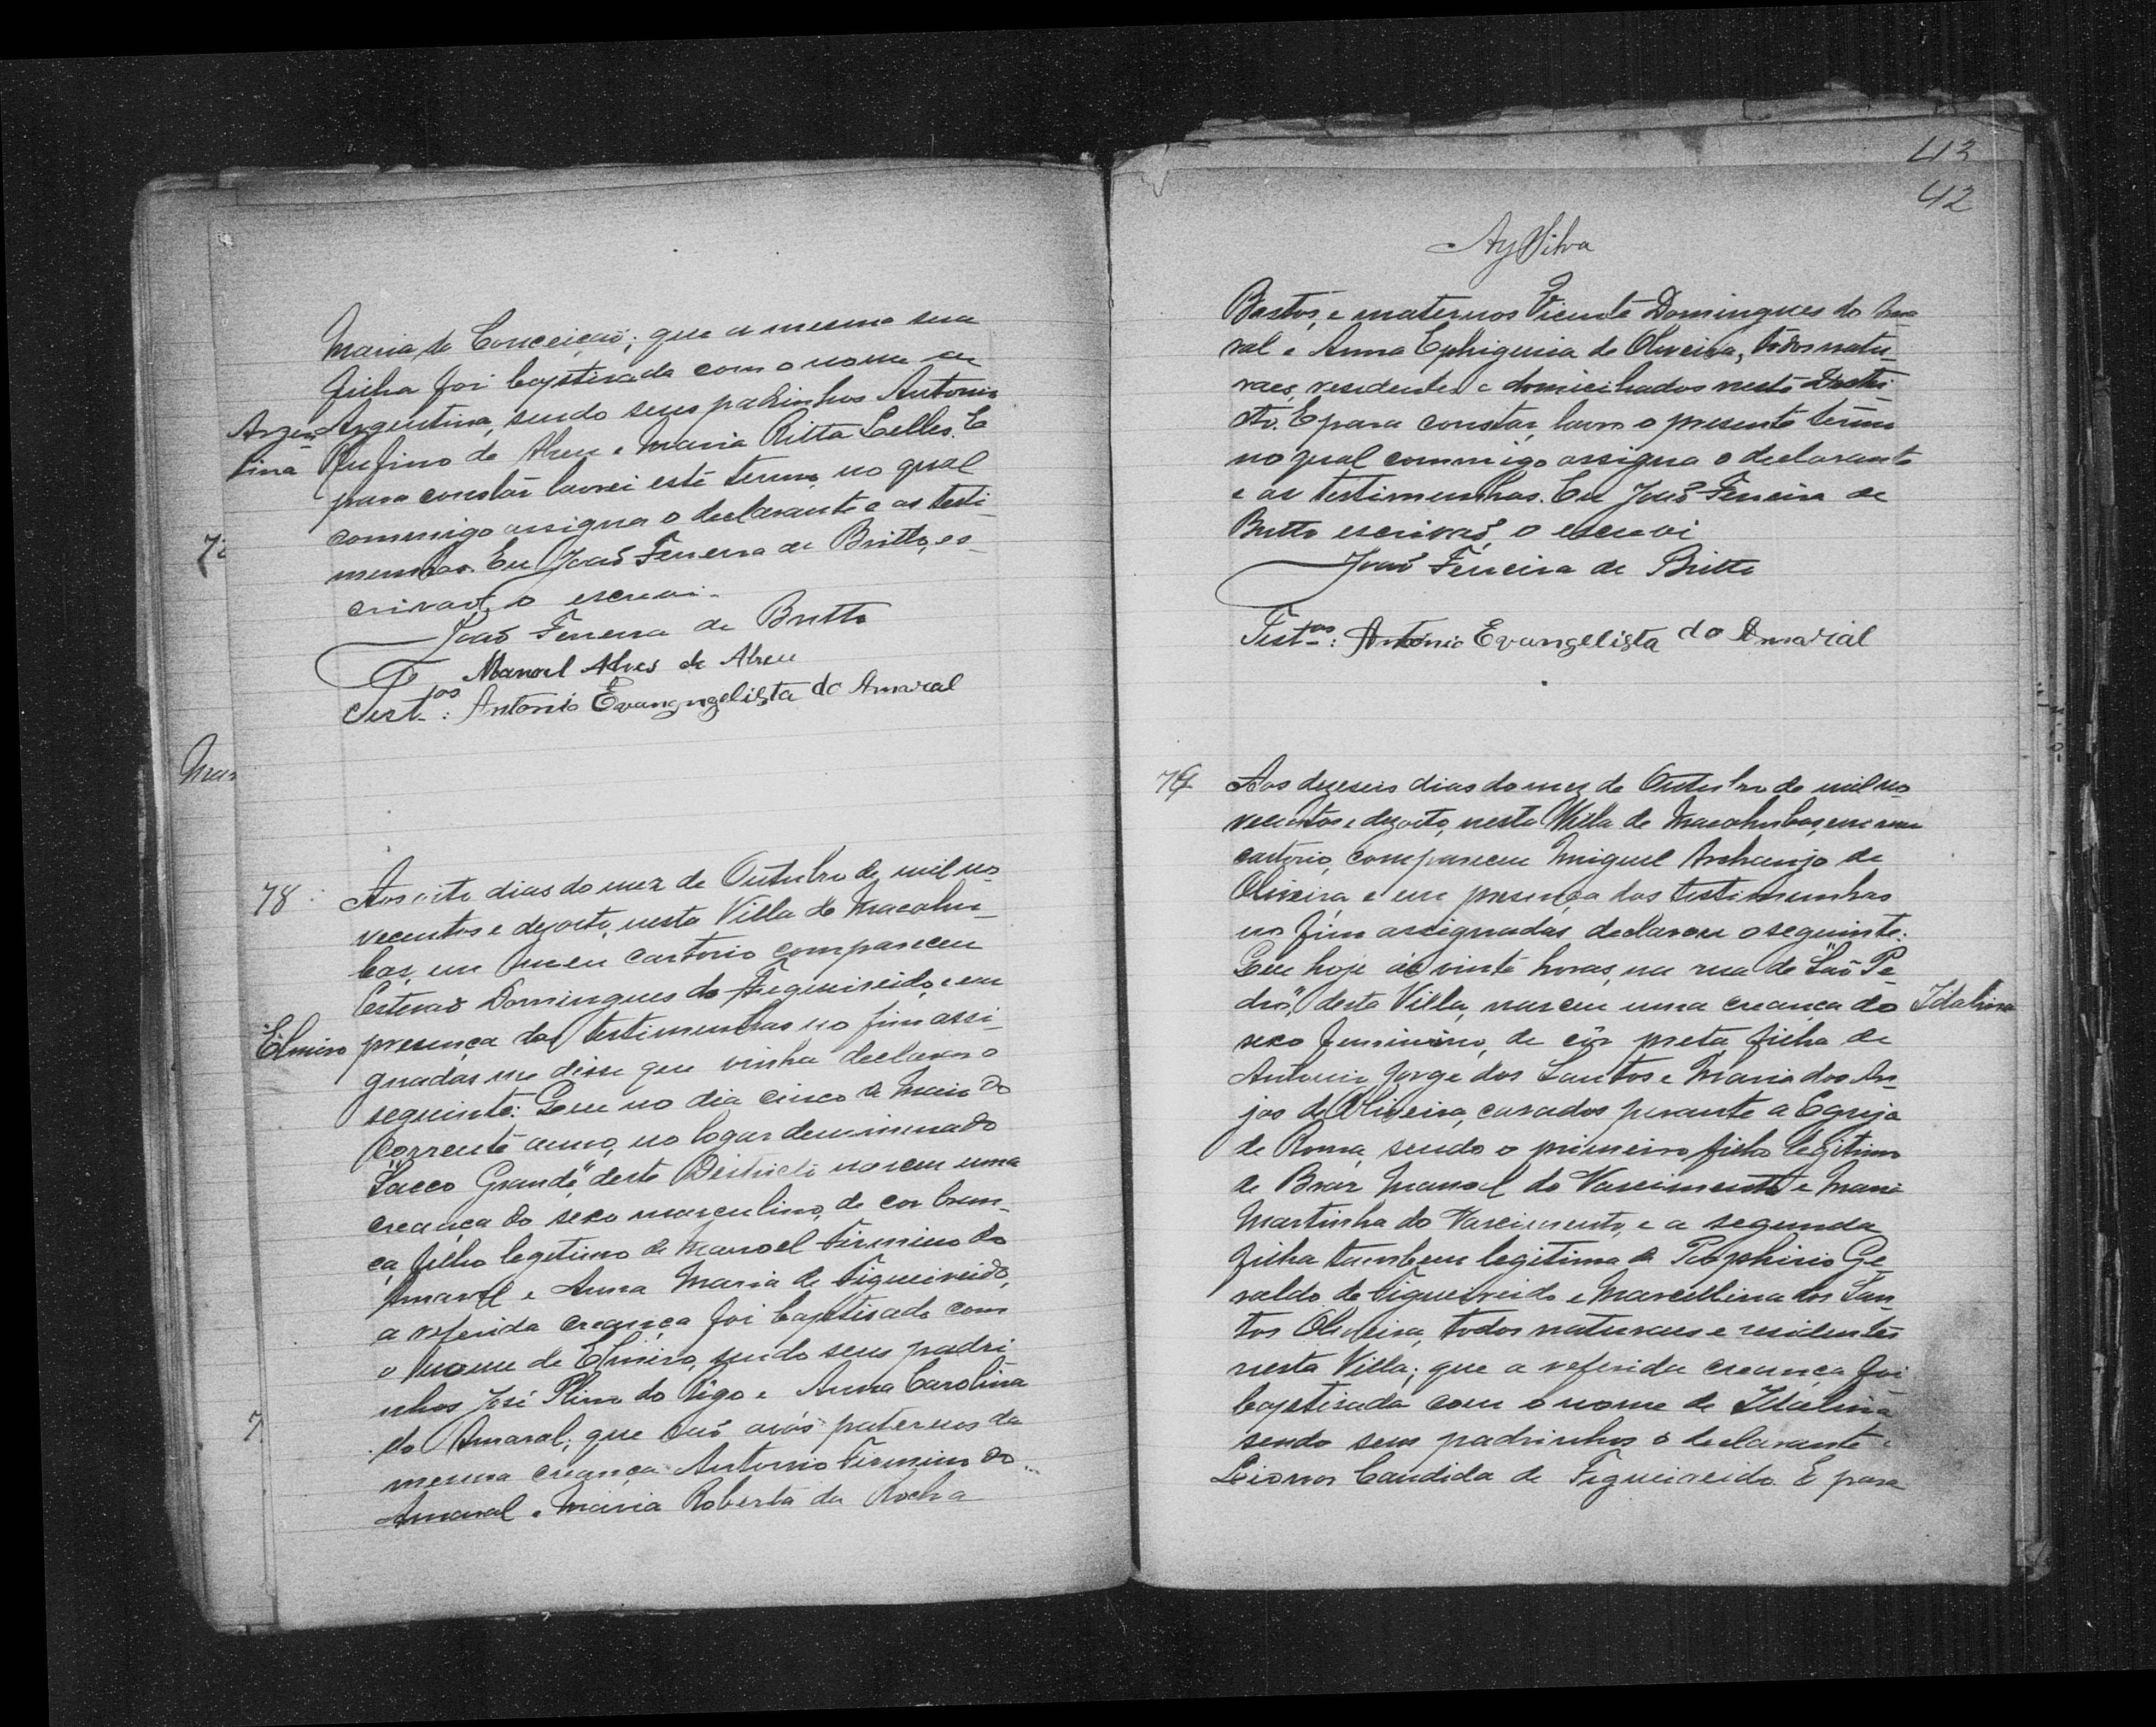 Maria da Conceição; que a mesma sua
filha foi baptisada com o nome de
Argentina, sendo seus padrinhos Antonio
Argen-
tina
Rufino de Abreu e Maria Ritta Lelles. E
para constar lavrei este termo, no qual
commigo assigna o declarante e as testi-
munhas. Eu João Ferreira de Britto, es-
crivão, o escrevi.
João Ferreira de Britto
Manoel Alves de Abreu
Test.as: Antonio Evangngelista do Amaral
78
Aos oito dias do mez de Outubro de mil no-
vecentos e dezoito, nesta Villa de Macahu-
bas, em meu cartorio compareceu
Estevão Domingues de Figueireido, e em
Elmiro
presença das testimunhas no fim assi-
gnadas me disse que vinha declarar o
seguinte: Que no dia cinco de Maio do
corrente anno, no logar denominado
"Sacco Grande", deste Districto nasceu uma
creança do sexo masculino, de cor bran-
ca, filho legitimo de Manoel Firmino do
Amaral e Anna Maria de Figueireido,
a referida creança foi baptisada com
o nome de Elmiro, sendo seus padri-
nhos José Plino do e Anna Carolina
do Amaral; que são avós paternos da
mesma creança Antonio Firmino do
Amaral e Maria Roberta da Rocha
43
42
Ay Silva
Bastos, e maternos Vicente Domingues do Ama-
ral e Anna Ephigenia de Oliveira, todos natu-
raes, residentes e domiciliados neste Distri-
cto. E para constar, lavro o presente termo
no qual commigo assigna o declarante
e as testimunhas. Eu João Ferreira de
Britto escrivão, o escrevi
João Ferreira de Britto
Test.as: Antonio Evangelista do Amaral
79
Aos dezeseis dias do mez de Outubro de mil no-
vecentos e dezoito, nesta Villa de Macahubas, em meu
cartorio, compareceu Miguel Archanjo de
Oliveira, e em presença das testimunhas
no fim assignadas, declarou o seguinte:
Que hoje ás vinte horas, na rua de "São Pe-
dro", desta Villa, nasceu uma creança do
Idalina
sexo feminino, de côr preta, filha de
Antonio Jorge dos Santos e Maria dos An-
jos de Oliveira, casados perante a Egreja
de Roma, sendo o primeiro filho legitimo
de Braz Manoel do Nascimento e Maria
Martinha do Nascimento, e a segunda
filha tambem legitima de Porphirio Ge-
raldo de Figueireido e Marcellina dos San-
tos Oliveira, todos naturaes e residentes
nesta Villa; que a referida creança foi
baptisada com o nome de Idalina
sendo seus padrinhos o declarante e
Leonor Candida de Figueireido. E para